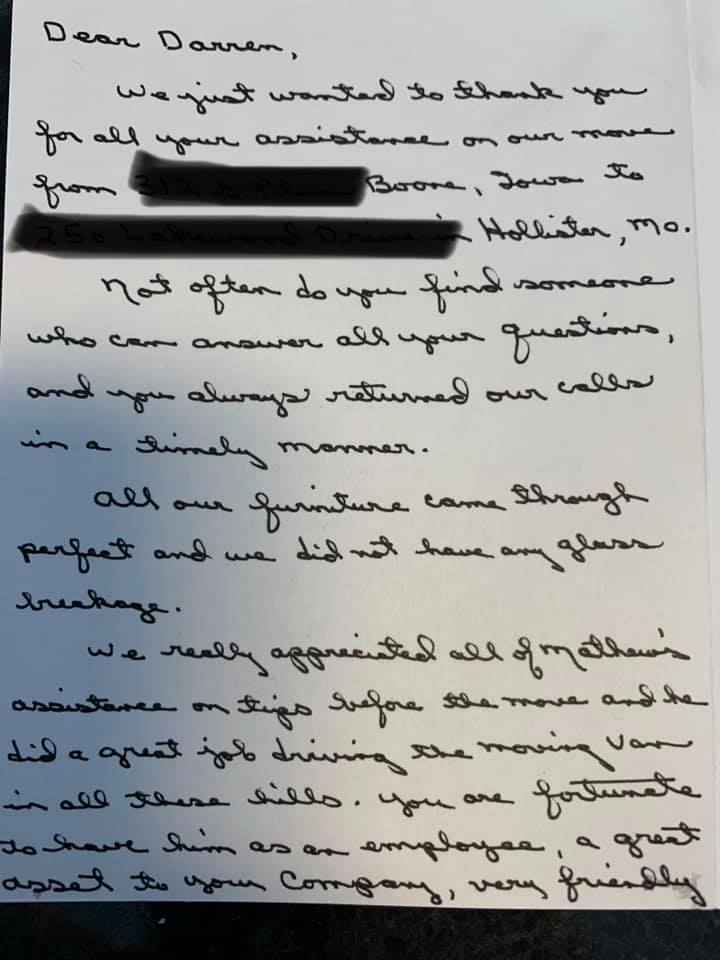 Dear Darren,
We just wanted to thank you
for all your assistance on our move
from Boone, Iowa to
Hollister, Mo.
Not often do you find someone
who can answer all your questions,
and you always returned our calls
in a timely manner.
All our furniture came through
perfect and we did not have any glass
breakage.
We really appreciated all of Mathew's
assistance on tips before the move and he
did a great job driving the moving van
in all these hills. You are fortunate
to have him as an employee, a great
asset to your Company, very friendly